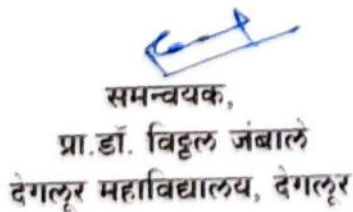 समन्वयक,
प्रा.डॉ. विठ्ठल जंबाले
देगलूर महाविद्यालय, देगलूर